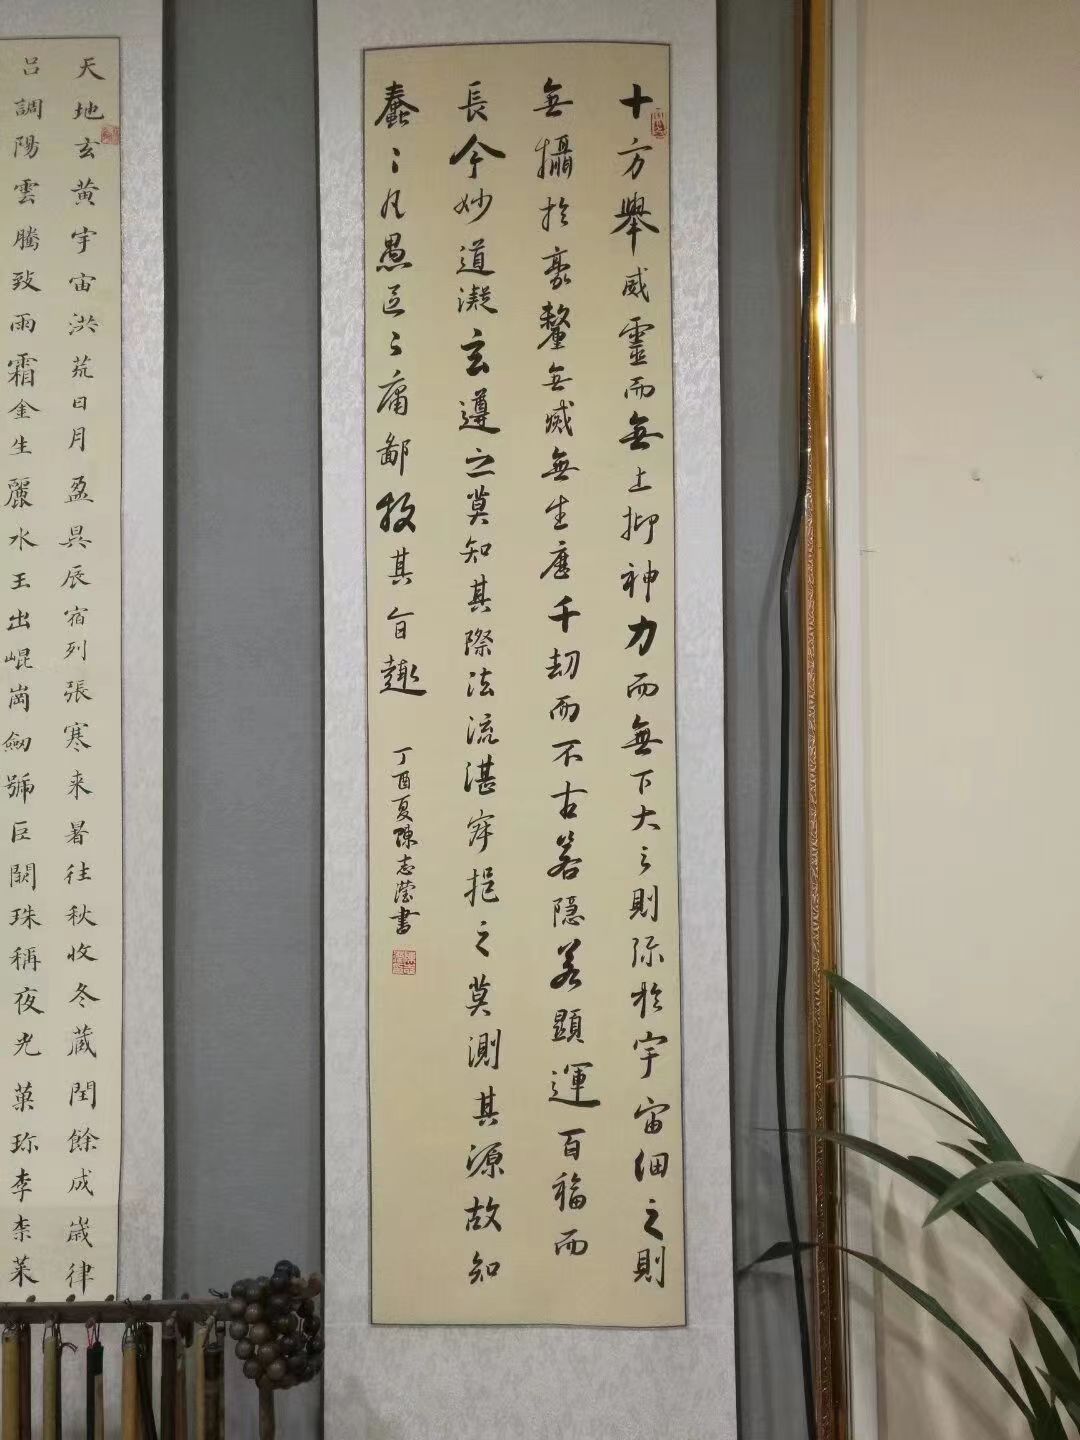 十方舉威靈而無上抑神力而無下大之則弥於宇宙細之則
無攝於豪釐無滅無生歷千劫而不古若隱若顯運百福而
長今妙道凝玄遵之莫知其際法流湛寂挹之莫測其源故知
蠢々凡愚區々庸鄙投其旨趣
丁酉夏陳志瀅書
天地玄黄宇宙洪荒日月盈昃辰宿列張寒来暑往秋收冬藏閏餘成歲律
吕調陽雲騰致雨霜金生麗水玉出崐崗劍號巨闕珠稱夜光菓珍李柰菜